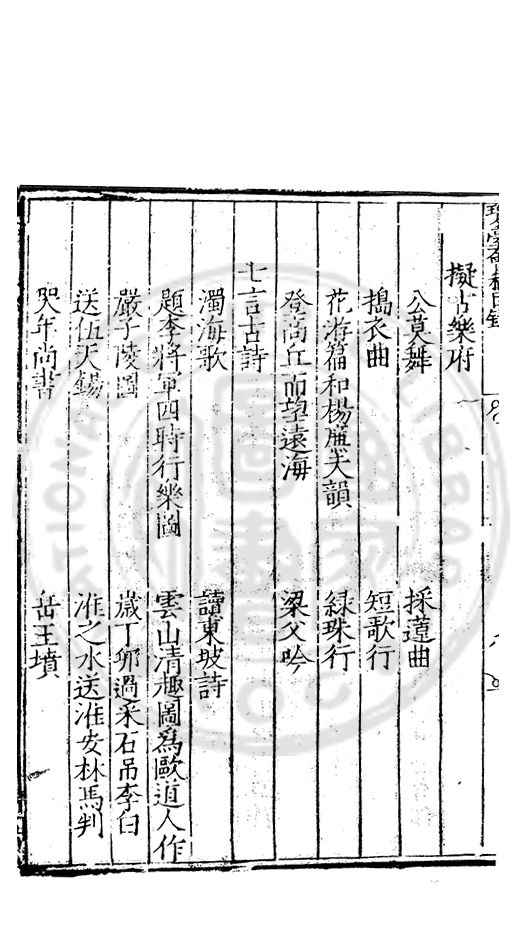 擬古樂府
公莫舞　採蓮曲
搗衣曲　短歌行
花游篇和楊廉夫韻　綠珠行
登高丘而望遠海　梁父吟
七言古詩
濁海歌　讀東坡詩
題李將軍四時行樂圖　雲山清趣圖爲歐道人作
嚴子陵圖　歲丁卯過采石吊李白
送伍天錫　淮之水送淮安林馬判
哭年尚書　岳王墳